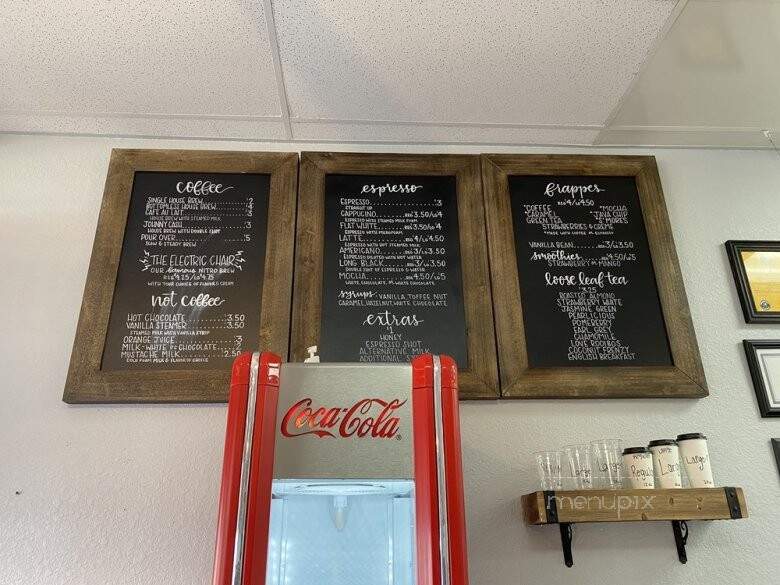 coffee
SINGLE HOUSE BREW 2
BOTTOMLESS HOUSE BREW 4
CAFE AU LAIT 3
HOUSE BREW WITH STEAMED MILK
JOHNNY CASH 3
HOUSE BREW WITH DOUBLE SHOT
POUR OVER 5
SLOW & STEADY BREW
THE ELECTRIC CHAIR
OUR famous NITRO BREW
REG 4.25/LG 4.75
WITH YOUR CHOICE OF FLAVORED CREAM
not coffee
HOT CHOCOLATE 3.50
VANILLA STEAMER 3.50
STEAMED MILK WITH VANILLA SYRUP
ORANGE JUICE 3
MILK-WHITE or CHOCOLATE 2
MUSTACHE MILK 2.50
espresso
ESPRESSO 3
STRAIGHT UP
CAPPUCINO REG 3.50/LG 4
ESPRESSO WITH STEAMED MILK
FLAT WHITE REG 3.50/LG 4
ESPRESSO WITH MICROFOAM
LATTE REG 4/LG 4.50
ESPRESSO WITH HOT STEAMED MILK
AMERICANO REG 3/LG 3.50
ESPRESSO DILUTED WITH HOT WATER
LONG BLACK REG 3/LG 3.50
DOUBLE SHOT OF ESPRESSO & WATER
MOCHA REG 4.50/LG 5
WHITE, CHOCOLATE, OR WHITE CHOCOLATE
syrups: VANILLA, TOFFEE NUT
CARAMEL, HAZELNUT, WHITE CHOCOLATE
extras
HONEY
ESPRESSO SHOT
ALTERNATIVE MILK
ADDITIONAL
frappes
REG 4/LG 4.50
*COFFEE *MOCHA
CARAMEL *JAVA CHIP
GREEN TEA S'MORES
STRAWBERRIES & CREME
*MADE WITH COFFEE OR ESPRESSO
VANILLA BEAN REG 3/LG 3.50
smoothies REG 4.50/LG 5
STRAWBERRY or MANGO
loose leaf tea
3.25
ROASTED ALMOND
STRAWBERRY WHITE
JASMINE GREEN
PEARLICIOUS
POMEBERRY
EARL GREY
CHAMOMILE
LOVE ROOIBOS
COCONUT FRENZY
ENGLISH BREAKFAST
Coca-Cola
Regular
Large
Large
menupix